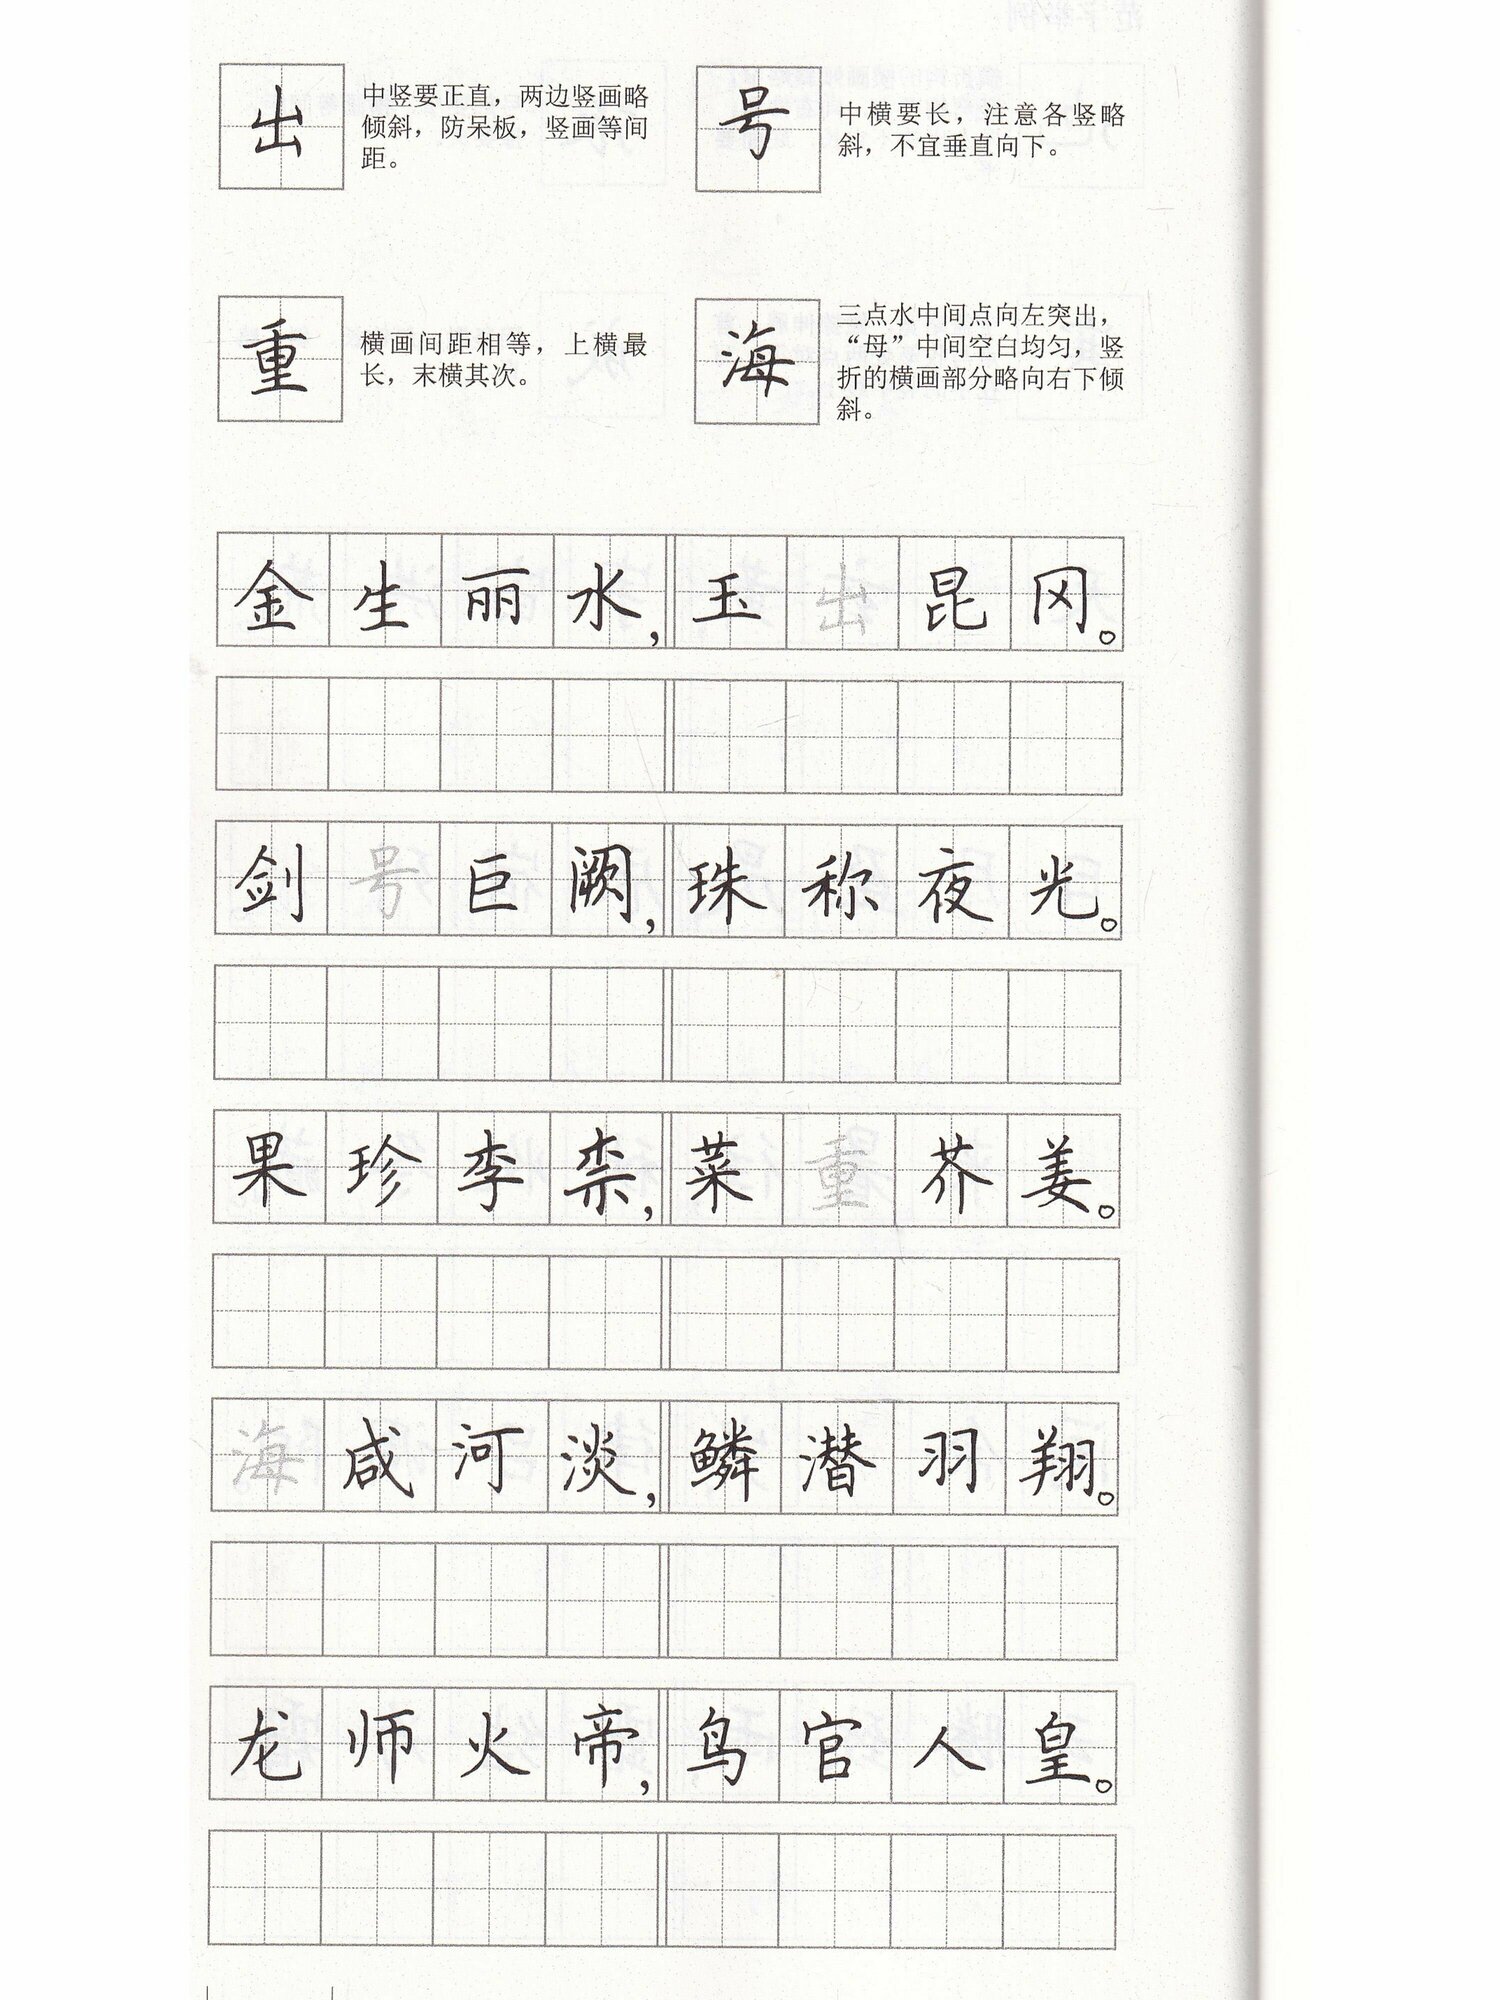 出
中竖要正直，两边竖画略
倾斜，防呆板，竖画等间
距。
号
中横要长，注意各竖略
斜，不宜垂直向下。
重
横画间距相等，上横最
长，末横其次。
海
三点水中间点向左突出，
“母”中间空白均匀，竖
折的横画部分略向右下倾
斜。
金生丽水，玉出昆冈。
剑号巨阙，珠称夜光。
果珍李柰，菜重芥姜。
海咸河淡，鳞潜羽翔。
龙师火帝，鸟官人皇。